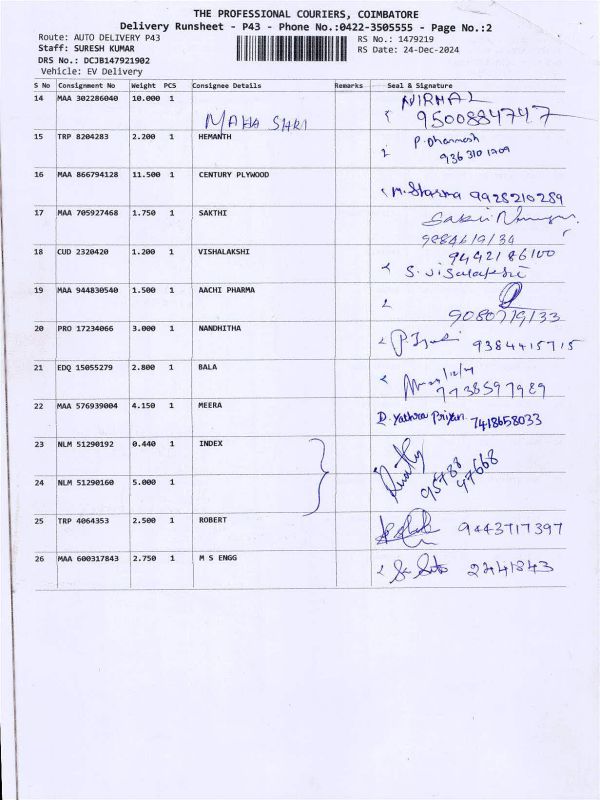 THE PROFESSIONAL COURIERS, COIMBATORE
Delivery Runsheet - P43 - Phone No.:0422-3505555 - Page No.:2
Route: AUTO DELIVERY P43 RS No.: 1479219
Staff: SURESH KUMAR RS Date: 24-Dec-2024
DRS No.: DCJB147921902
Vehicle: EV Delivery
S No Consignment No Weight PCS Consignee Details Remarks Seal & Signature
14 MAA 302286040 10.000 1 NIRMAL
MAHA SHRI 9500884747
15 TRP 8204283 2.200 1 HEMANTH P. Dharmesh
936 310 1209
16 MAA 866794128 11.500 1 CENTURY PLYWOOD
M. Sharma 9928210289
17 MAA 705927468 1.750 1 SAKTHI
9884619134
18 CUD 2320420 1.200 1 VISHALAKSHI 9442186100
19 MAA 944830540 1.500 1 AACHI PHARMA
9080719133
20 PRO 17234066 3.000 1 NANDHITHA
9384415715
21 EDQ 15055279 2.800 1 BALA
7738597989
22 MAA 576939004 4.150 1 MEERA
D. Yathra Priyan 7418658033
23 NLM 51290192 0.440 1 INDEX
95788
47668
24 NLM 51290160 5.000 1
25 TRP 4064353 2.500 1 ROBERT
9443717397
26 MAA 600317843 2.750 1 M S ENGG
2241843